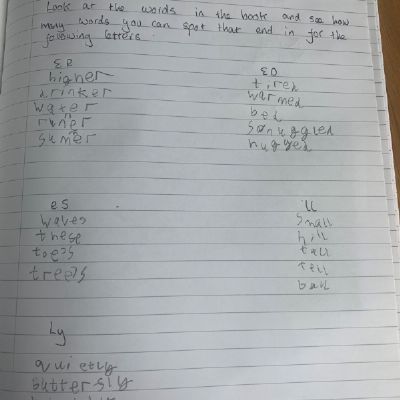 Look at the words in the book and see how
many words you can spot that end in for the
following letters
ER
higher
drinker
water
runer
n
sumer
ED
tired
warmed
bed
snuggled
hugged
es
waves
these
toes
trees
ll
small
hill
tall
tell
ball
Ly
quietly
buttersly